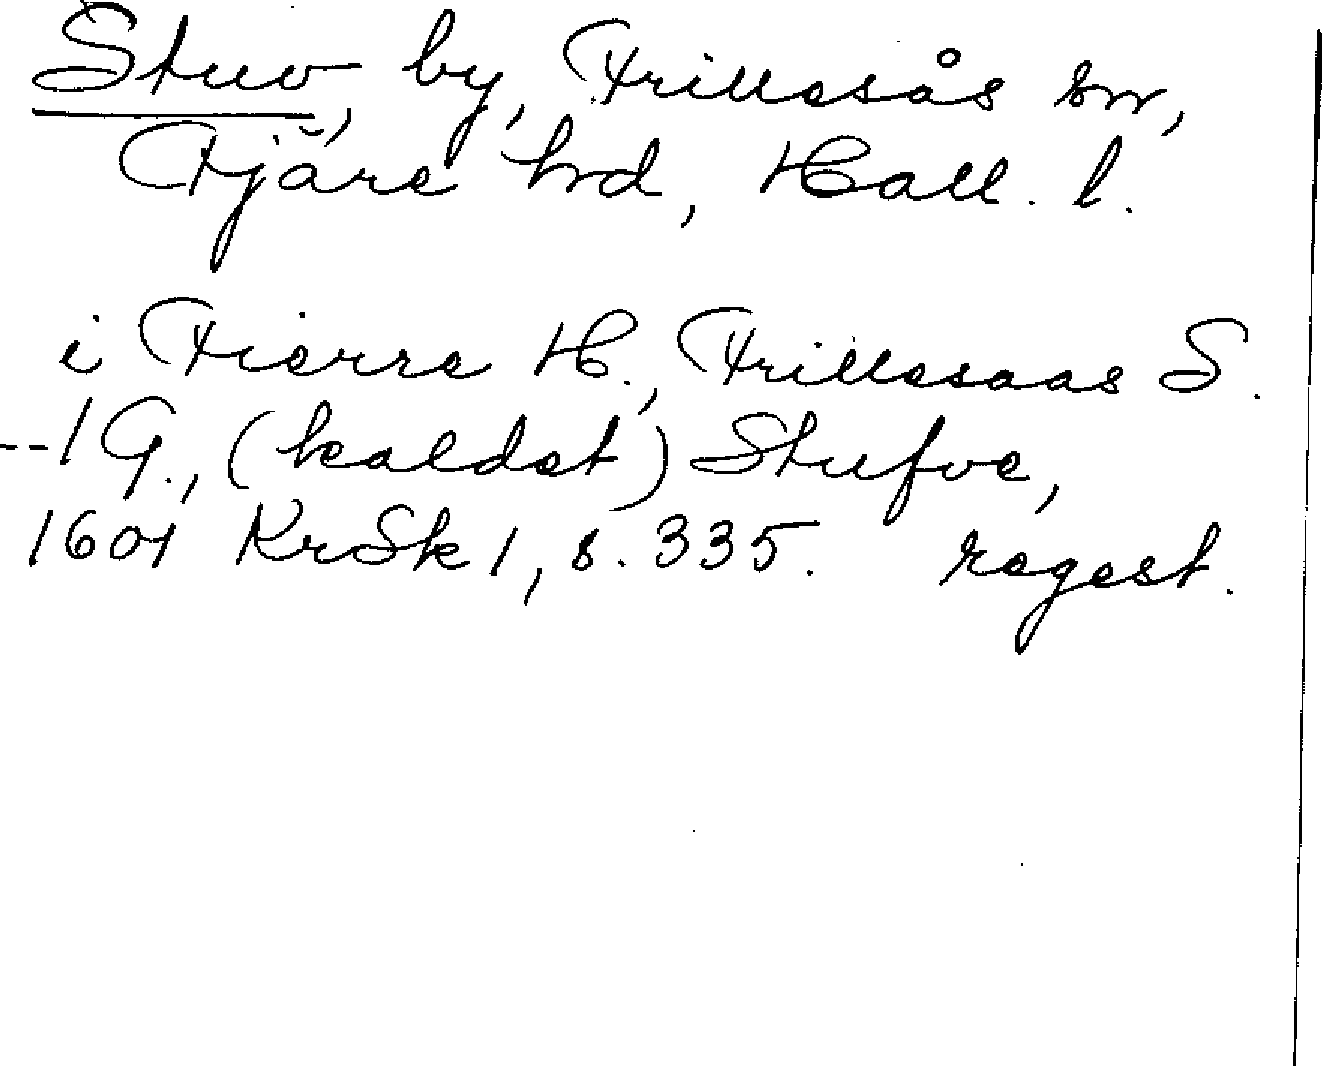 Stuv, by, Frillesås sn,
Fjäre hd, Hall. l.
i Fierre H., Frillesaas S.
--1 G., (kaldet) Stufve,
1601 KrSk 1, s. 335. regest.